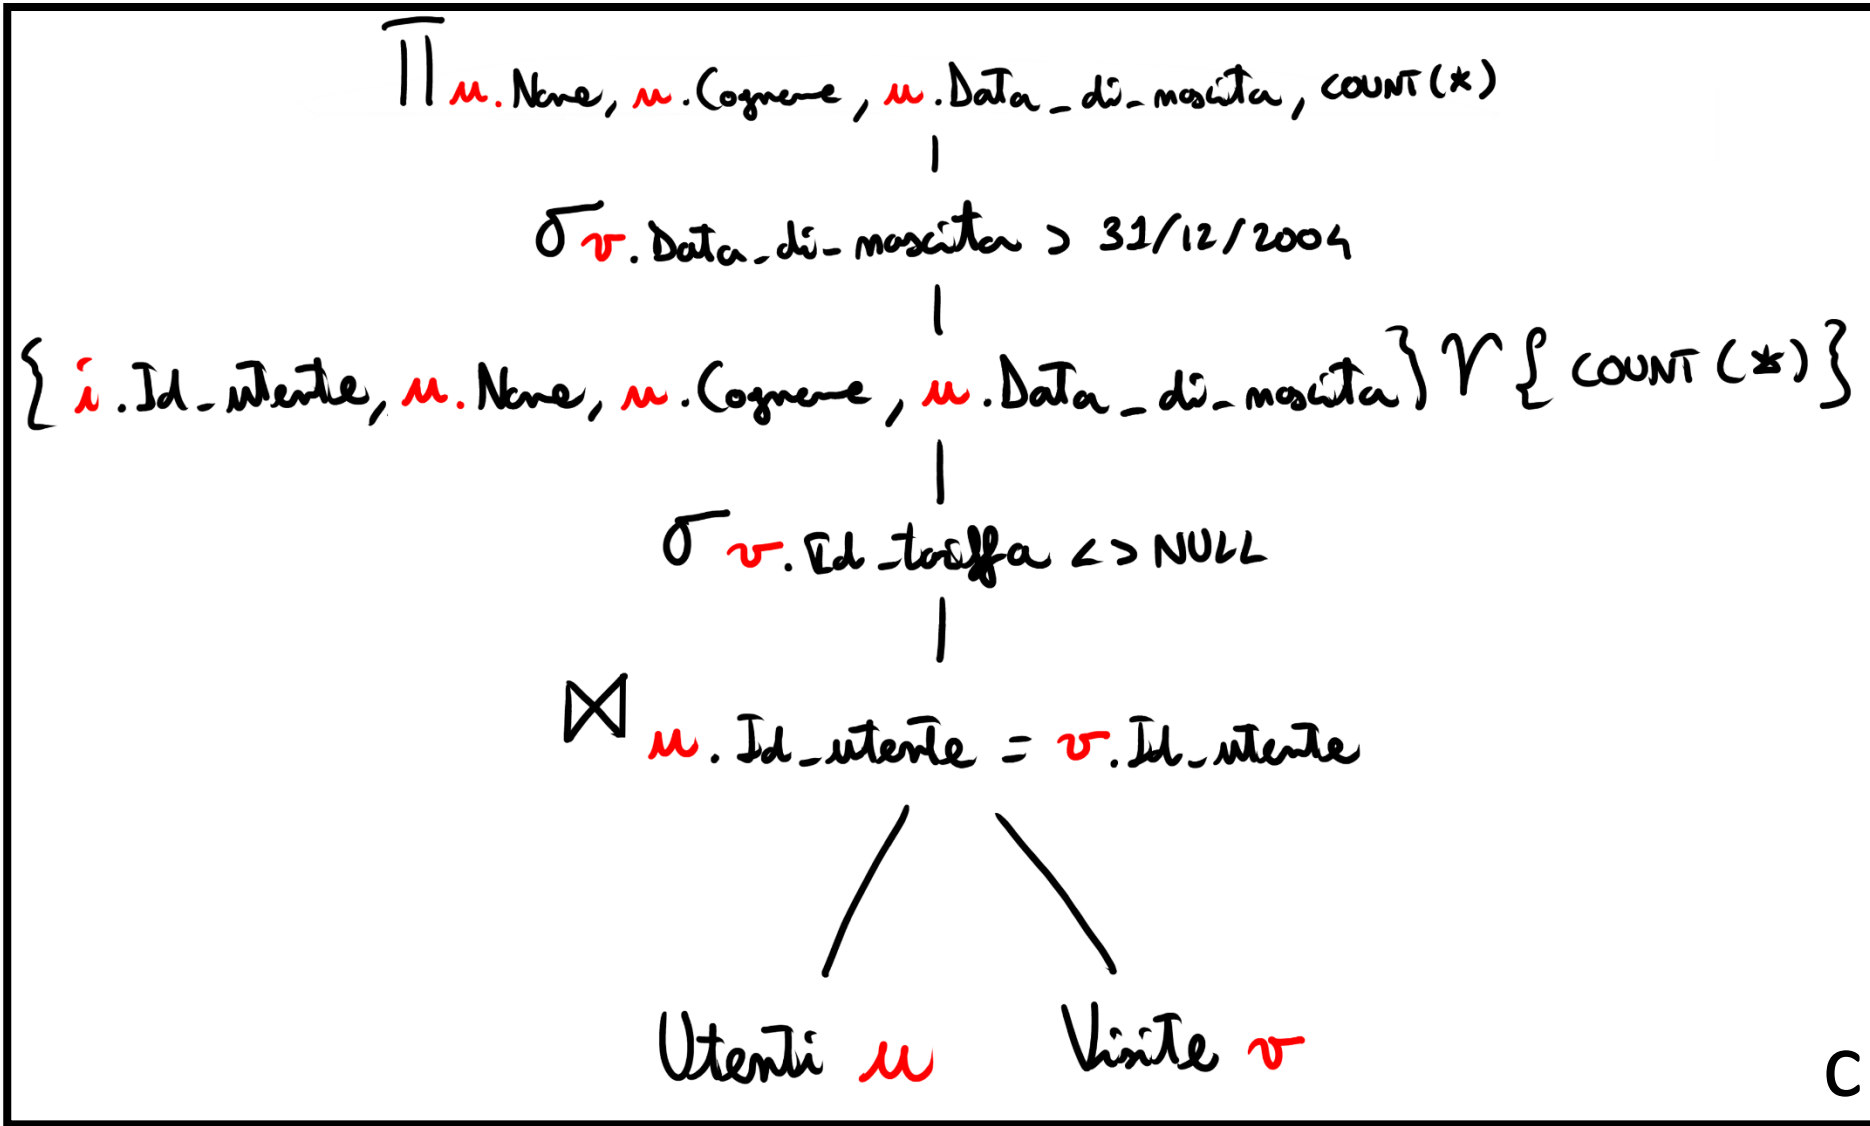 π u.Nome, u.Cognome, u.Data_di_nascita, COUNT(*)
σ v.Data_di_nascita > 31/12/2004
{ i.Id_utente, u.Nome, u.Cognome, u.Data_di_nascita } γ { COUNT(*) }
σ v.Id_tariffa <> NULL
⋈ u.Id_utente = v.Id_utente
Utenti u Visite v
C